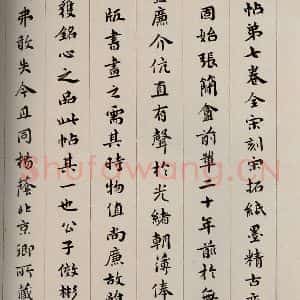 帖第七卷全宋刻宋拓紙墨精古
固始張盦前輩三十年前於每
廉介伉直有聲於光緒朝薄俸
版書畫之需其時物值尚廉故雖
獲銘心之品此帖其一也公子傚彬
弗敢失今且同楊蔭北京卿所藏
Shufawang.CN